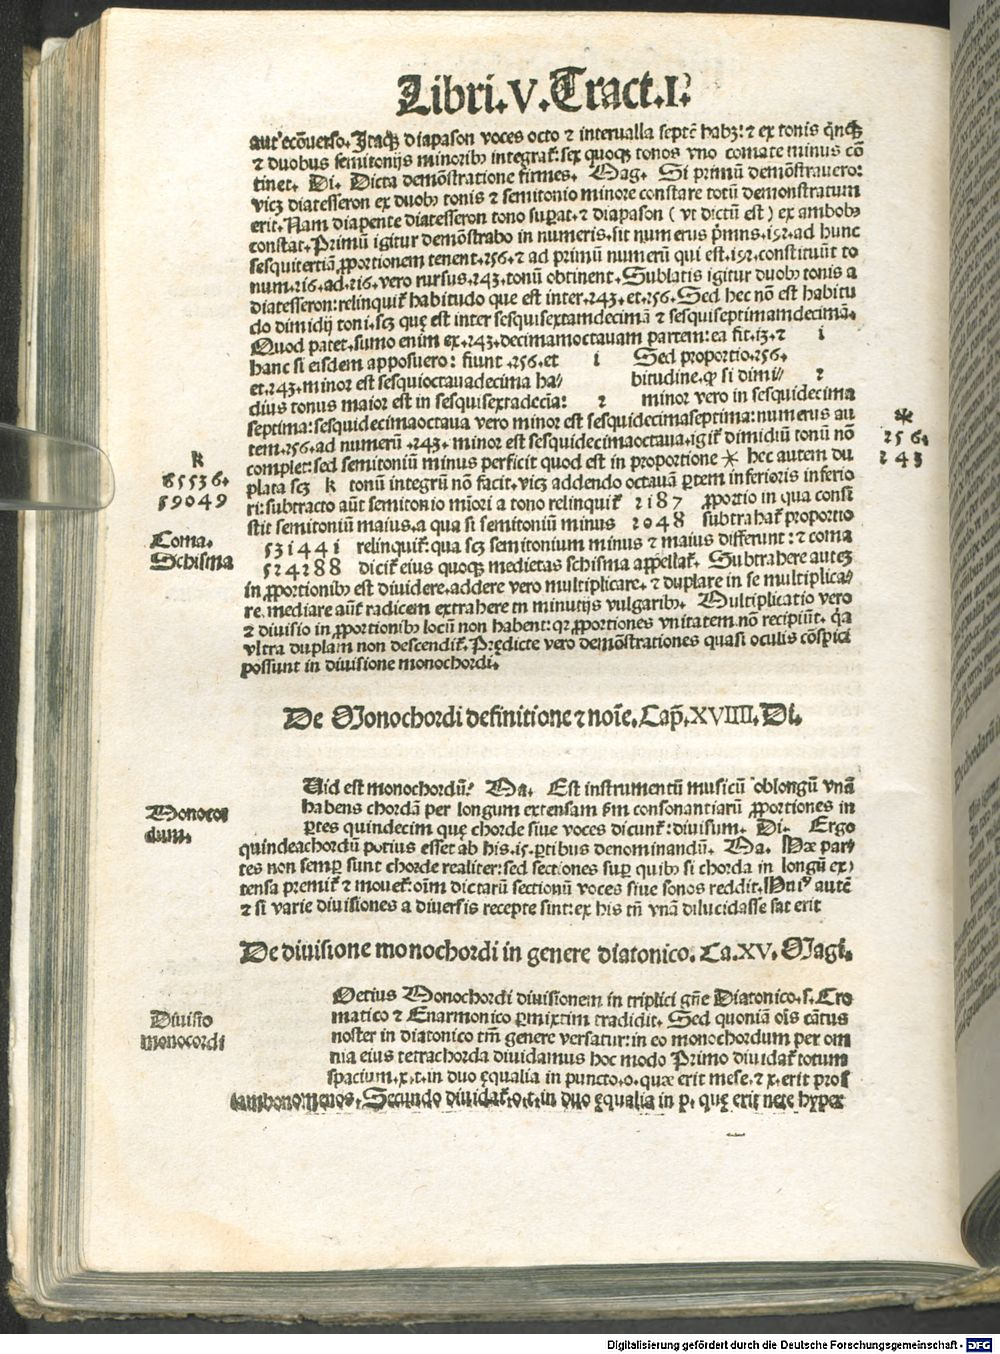 Libri.V.Tract.I.
aut ecōuerso. Itaqȝ diapason voces octo ⁊ interualla septē habȝ: ⁊ ex tonis q̄nqȝ
⁊ duobus semitonijs minoribꝰ integrat̄: sex quoqȝ tonos vno comate minus cō
tinet. Di. Dicta demōstratione firmes. Mag. Si primū demōstrauero:
vicȝ diatesseron ex duobꝰ tonis ⁊ semitonio minore constare totū demonstratum
erit. Nam diapente diatesseron tono suꝑat. ⁊ diapason ( vt dictū est ) ex ambobꝰ
constat. Primū igitur demōstrabo in numeris. sit numerus p̄mus .192. ad hunc
sesquitertiā ꝓportionem tenent .256. ⁊ ad primū numerū qui est .192. constituūt to
num .216. ad .216. vero rursus .243. tonū obtinent. Sublatis igitur duobꝰ tonis a
diatesseron: relinquit̄ habitudo que est inter .243. et .256. Sed hec nō est habitu
do dimidij toni. scȝ quę est inter sesquisextamdecimā ⁊ sesquiseptimamdecimā.
Quod patet. sumo enim ex .243. decimamoctauam partem: ea fit .13. ⁊ 1
hanc si eisdem apposuero: fiunt .256. et 1 Sed proportio .256.
et .243. minor est sesquioctauadecima ha⸗ bitudine. ꝙ si dimi⸗ 2
dius tonus maior est in sesquisextadecīa: 2 minor vero in sesquidecima
septima: sesquidecimaoctaua vero minor est sesquidecimaseptima: numerus au
tem .256. ad numerū .243. minor est sesquidecimaoctaua. igit̄ dimidiū tonū nō
complet: sed semitoniū minus perficit quod est in proportione * hec autem du
plata scȝ k tonū integrū nō facit. vicȝ addendo octauā ꝑtem inferioris inferio
ri: subtracto aūt semitonio mīori a tono relinquit̄ 2187 ꝓportio in qua consi
stit semitoniū maius. a qua si semitoniū minus 2048 subtrahat̄ proportio
531441 relinquit̄: qua scȝ semitonium minus ⁊ maius differunt: ⁊ coma
524288 dicit̄ eius quoqȝ medietas schisma appellat̄. Subtrahere auteȝ
in ꝓportionibꝰ est diuidere. addere vero multiplicare. ⁊ duplare in se multiplica⸗
re. mediare aūt radicem extrahere in minutijs vulgaribꝰ. Multiplicatio vero
⁊ diuisio in ꝓportionibꝰ locū non habent: qꝛ ꝓportiones vnitatem nō recipiūt. q̄a
vltra duplam non descendit̄. Prędicte vero demōstrationes quasi oculis cōspici
possunt in diuisione monochordi.
*
256.
243
k
65536.
59049
Coma.
Schisma
De Monochordi definitione ⁊ noīe. Cap̄. XVIIII. Di.
Uid est monochordū? Ma. Est instrumentū musicū oblongū vnā
habens chordā per longum extensam ẜm consonantiarū ꝓportiones in
ꝑtes quindecim quę chorde siue voces dicunt̄: diuisum. Di. Ergo
quindeachordū potius esset ab his .15. ꝑtibus denominandū. Ma. Hæ par⸗
tes non semꝑ sunt chorde realiter: sed sectiones suꝑ quibꝰ si chorda in longū ex⸗
tensa premit̄ ⁊ mouet̄: oīm dictarū sectionū voces siue sonos reddit. autē
⁊ si varie diuisiones a diuersis recepte sint: ex his tn̄ vnā dilucidasse sat erit
Monocor
dum.
De diuisione monochordi in genere diatonico. Ca. XV. Magi.
Oetius Monochordi diuisionem in triplici gn̄e Diatonico. s. Cro
matico ⁊ Enarmonico ꝑmixtim tradidit. Sed quoniā oīs cātus
noster in diatonico tm̄ genere versatur: in eo monochordum per om
nia eius tetrachorda diuidamus hoc modo Primo diuidat̄ totum
spacium. x. t. in duo ęqualia in puncto. o. quæ erit mese. ⁊ x. erit pros
lambonomenos. Secundo diuidat̄. o. t. in duo ęqualia in p. quę erit nete hyper
Diuisio
monocordi
Digitalisierung gefördert durch die Deutsche Forschungsgemeinschaft - DFG